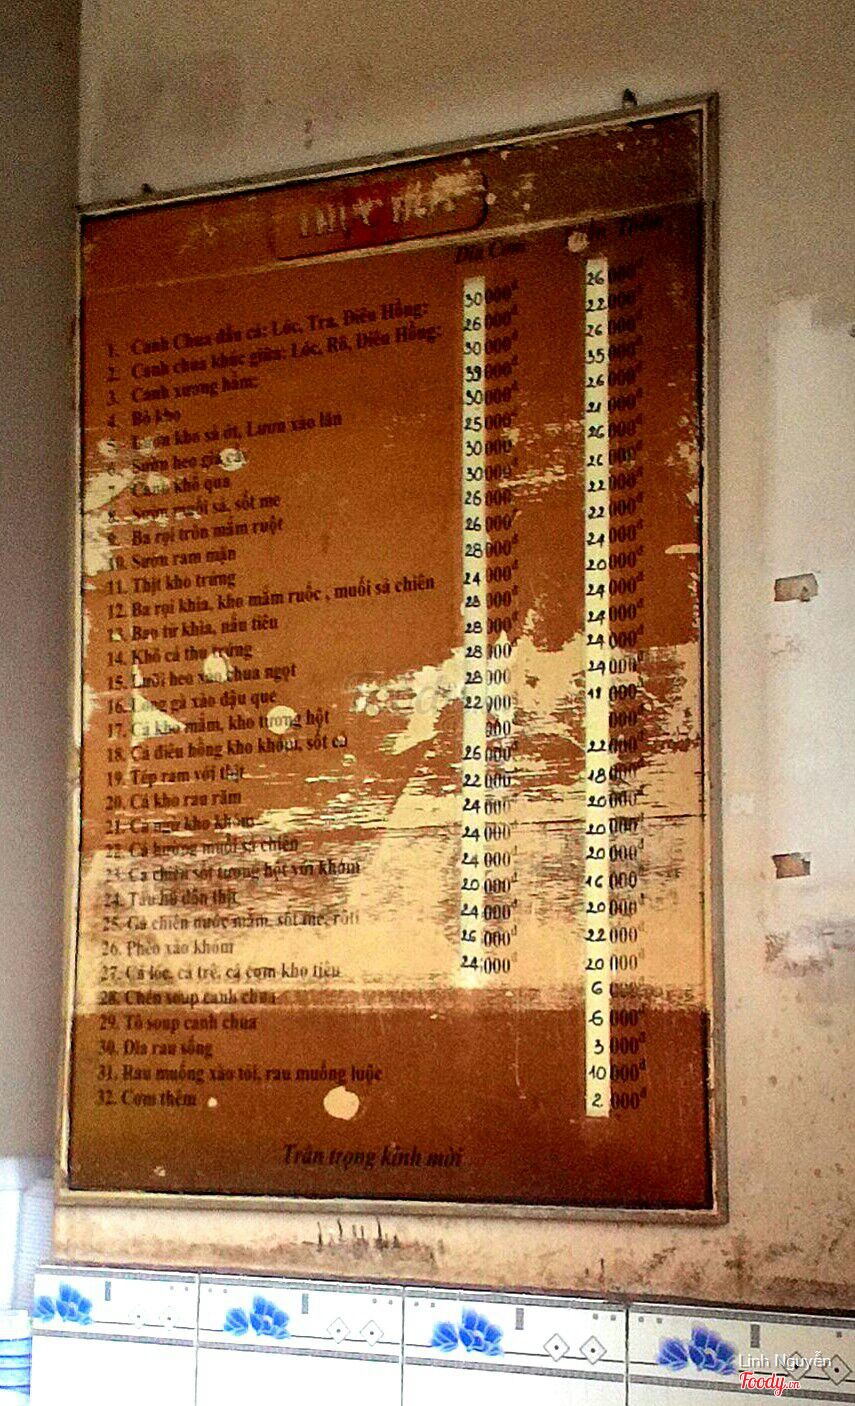 THỰC ĐƠN
Dĩa Cơm Phần Thêm
1. Canh Chua đầu cá: Lóc, Tra, Điêu Hồng: 30 000đ 26 000đ
2. Canh chua khúc giữa: Lóc, Rô, Diêu Hồng: 26 000đ 22 000đ
3. Canh xương hầm: 30 000đ 26 000đ
4. Bò kho 39 000đ 35 000đ
5. Lươn kho sả ớt, Lươn xào lăn 30 000đ 26 000đ
6. Sườn heo giả cầy 25 000đ 21 000đ
7. Canh khổ qua 30 000 26 000đ
8. Sườn muối sả, sốt me 30 000đ 26 000đ
9. Ba rọi trộn mắm ruột 26 000 22 000đ
10. Sườn ram mặn 26 000đ 22 000đ
11. Thịt kho trứng 28 000đ 24 000đ
12. Ba rọi khìa, kho mắm ruốc , muối sả chiên 24 000đ 20 000đ
13. Bao tử khìa, nấu tiêu 28 000đ 24 000đ
14. Khô cá thu trứng 28 000đ 24 000đ
15. Lưỡi heo xào chua ngọt 28 000đ 24 000đ
16. Lòng gà xào đậu que 28 000 24 000đ
17. Cá kho mắm, kho tương hột 22 000 000đ
18. Cá điêu hồng kho khóm, sốt cà 000đ 000đ
19. Tép ram với thịt 26 000đ 22 000đ
20. Cá kho rau răm 22 000 18 000đ
21. Cá ngừ kho khóm 24 000đ 20 000đ
22. Cá hường muối sả chiên 24 000đ 20 000đ
23. Cá chiên sốt tương hột với khóm 24 000đ 20 000đ
24. Tàu hủ dồn thịt 20 000đ 16 000đ
25. Gà chiên nước mắm, sốt me, rôti 24 000đ 20 000đ
26. Phèo xào khóm 26 000đ 22 000
27. Cá lóc, cá trê, cá cơm kho tiêu 24 000đ 20 000đ
28. Chén soup canh chua 6 000đ
29. Tô soup canh chua 6 000đ
30. Dĩa rau sống 3 000đ
31. Rau muống xào tỏi, rau muống luộc 10 000đ
32. Cơm thêm 2 000đ
Trân trọng kính mời
Linh Nguyễn
Foody.vn